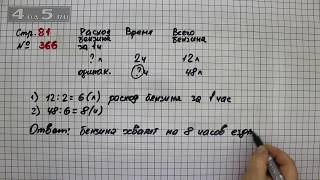 4аs.ru
Стр. 81
№ 366
Расход бензина за 1ч
Время
Всего бензина
? л
2ч
12л
одинак.
? ч
48л
1) 12:2=6(л) расход бензина за 1 час
2) 48:6=8(ч)
Ответ: бензина хватит на 8 часов езды